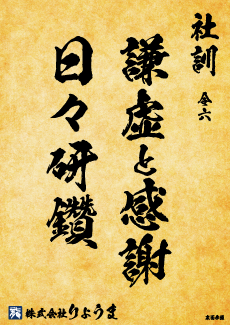 社訓
全六
謙虚と感謝
日々研鑽
株式会社りょうま